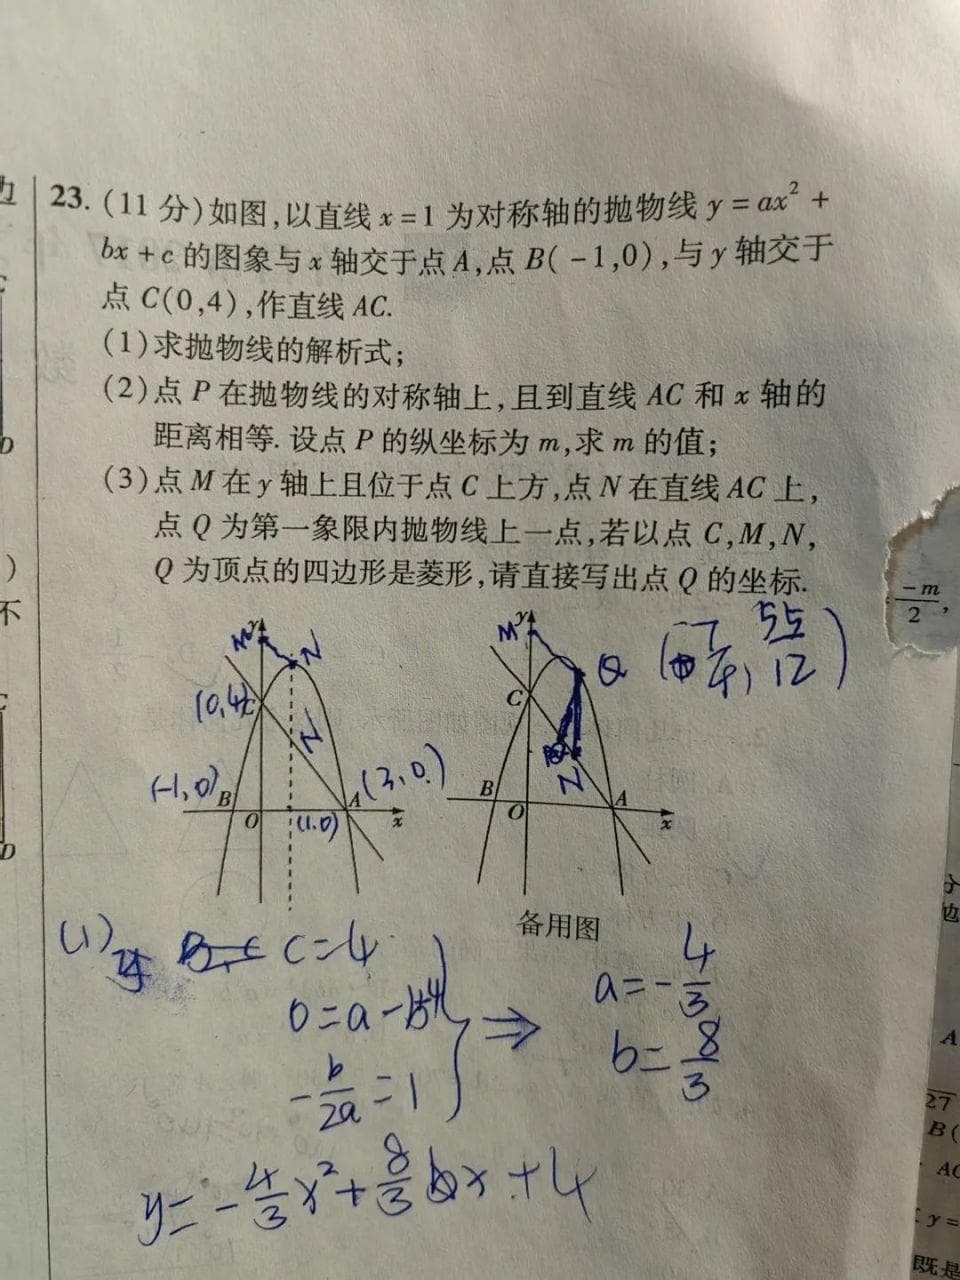 23. (11 分)如图,以直线 x = 1 为对称轴的抛物线 y = ax² +
bx + c 的图象与 x 轴交于点 A,点 B( - 1,0),与 y 轴交于
点 C(0,4),作直线 AC.
(1)求抛物线的解析式;
(2)点 P 在抛物线的对称轴上,且到直线 AC 和 x 轴的
距离相等. 设点 P 的纵坐标为 m,求 m 的值;
(3)点 M 在 y 轴上且位于点 C 上方,点 N 在直线 AC 上,
点 Q 为第一象限内抛物线上一点,若以点 C,M,N,
Q 为顶点的四边形是菱形,请直接写出点 Q 的坐标.
-m/2,
M y N
(0,4) C
N
(-1,0) B O (1.0) A (3,0) x
M y
C Q (7/4, 55/12)
N
B O A x
备用图
(1) C=4
0=a-b+4
-b/2a=1
⇒
a=-4/3
b=8/3
y=-4/3x²+8/3x+4
D
不
D
A
27
B(
AC
y =
既是